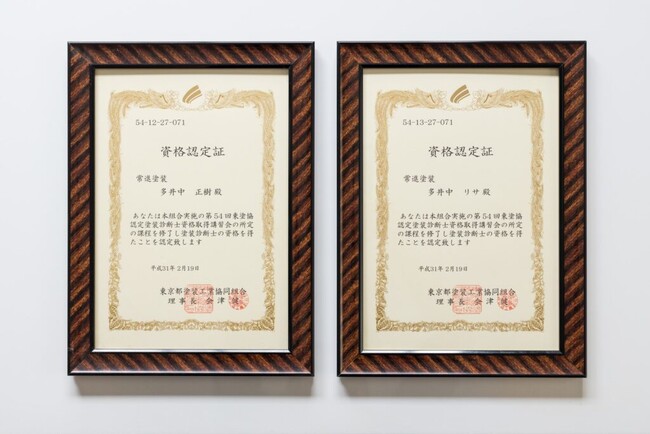 54-12-27-071
資格認定証
常進塗装
多井中 正樹 殿
あなたは本組合実施の第54回東塗協
認定塗装診断士資格取得講習会の所定
の課程を修了し塗装診断士の資格を得
たことを認定致します
平成31年2月19日
東京都塗装工業協同組合
理事長 会津 健
54-13-27-071
資格認定証
常進塗装
多井中 リサ 殿
あなたは本組合実施の第54回東塗協
認定塗装診断士資格取得講習会の所定
の課程を修了し塗装診断士の資格を得
たことを認定致します
平成31年2月19日
東京都塗装工業協同組合
理事長 会津 健